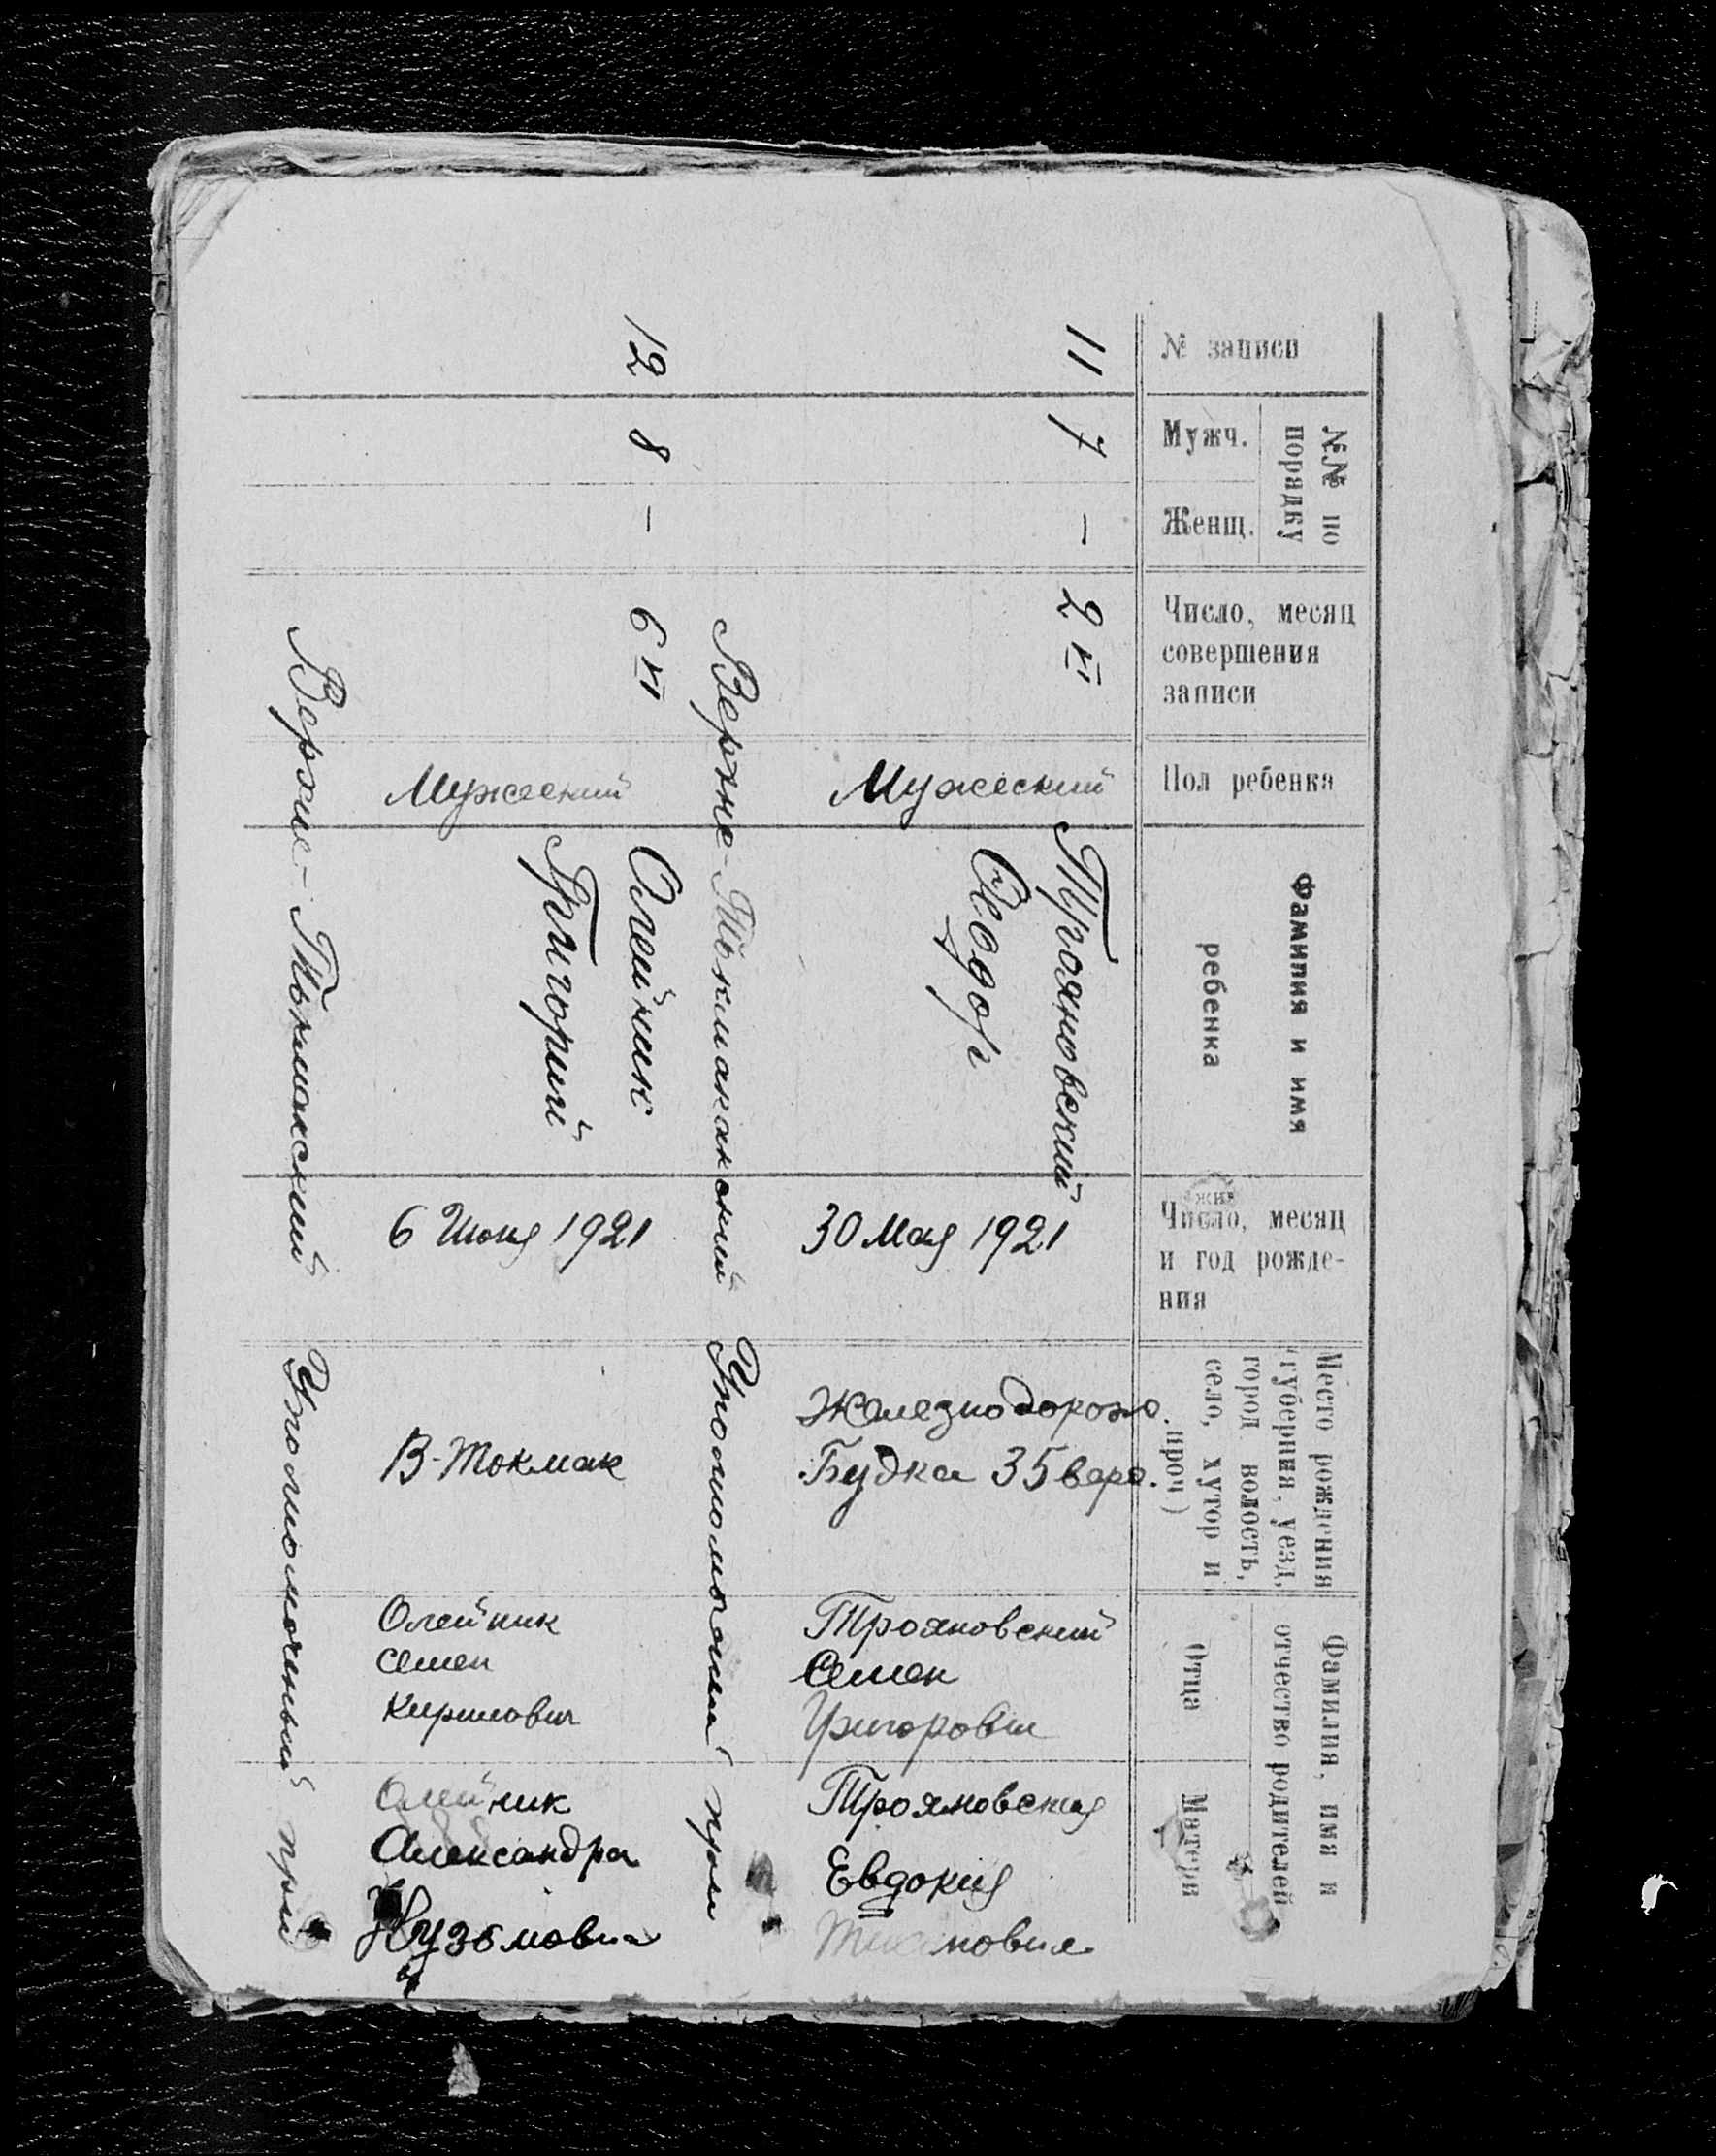 № записи
№№ по
порядку
Мужч.
Женщ.
Число, месяц
совершения
записи
Пол ребенка
Фамилия и имя
ребенка
Число, месяц
и год рожде-
ния
Место рождения
(губерния, уезд,
город волость,
село, хутор и
проч)
Фамилия, имя и
отчество родителей
Отца
Матери
11
7
—
2 VI
Мужеский
Трояновский
Феодор
30 Мая 1921
Железнодорож.
Будка 35 верс.
Трояновский
Семен
Григоров
Трояновская
Евдокия
Верхне-Токмакский Уполномочený
12
8
—
6 VI
Мужеский
Олейник
Григорий
6 Июня 1921
В-Токмак
Олейник
Семен
Кирилович
Олейник
Александра
Кузьмовна
Верхне-Токмакский Уполномоченный